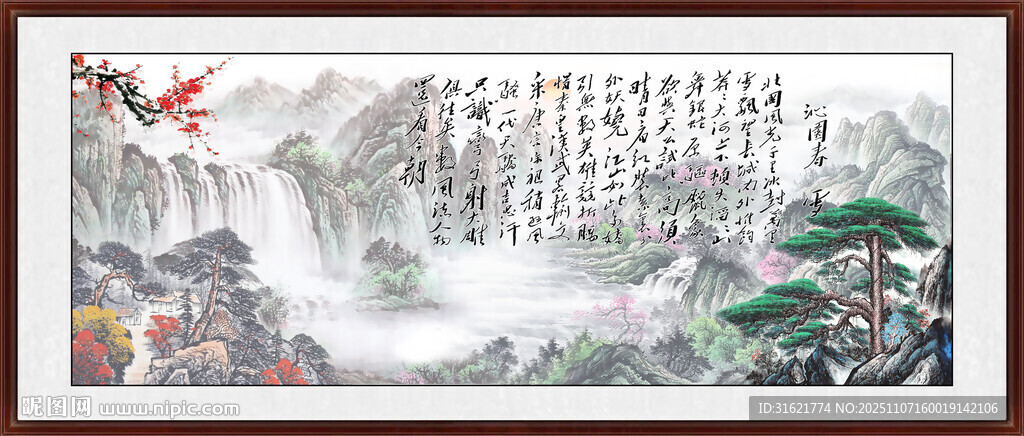 沁園春 雪
北国風光千里冰封萬里
雪飘望长城内外惟餘
莽莽大河上下頓失滔滔山
舞銀蛇原驰蜡象
欲与天公試比高須
晴日看红装素裹分
外妖嬈江山如此多嬌
引無數英雄競折腰
惜秦皇漢武略輸文
采唐宗宋祖稍逊风
騷一代天驕成吉思汗
只識彎弓射大雕
俱往矣數風流人物
還看今朝
昵图网 www.nipic.com
ID:31621774 NO:20251107160019142106